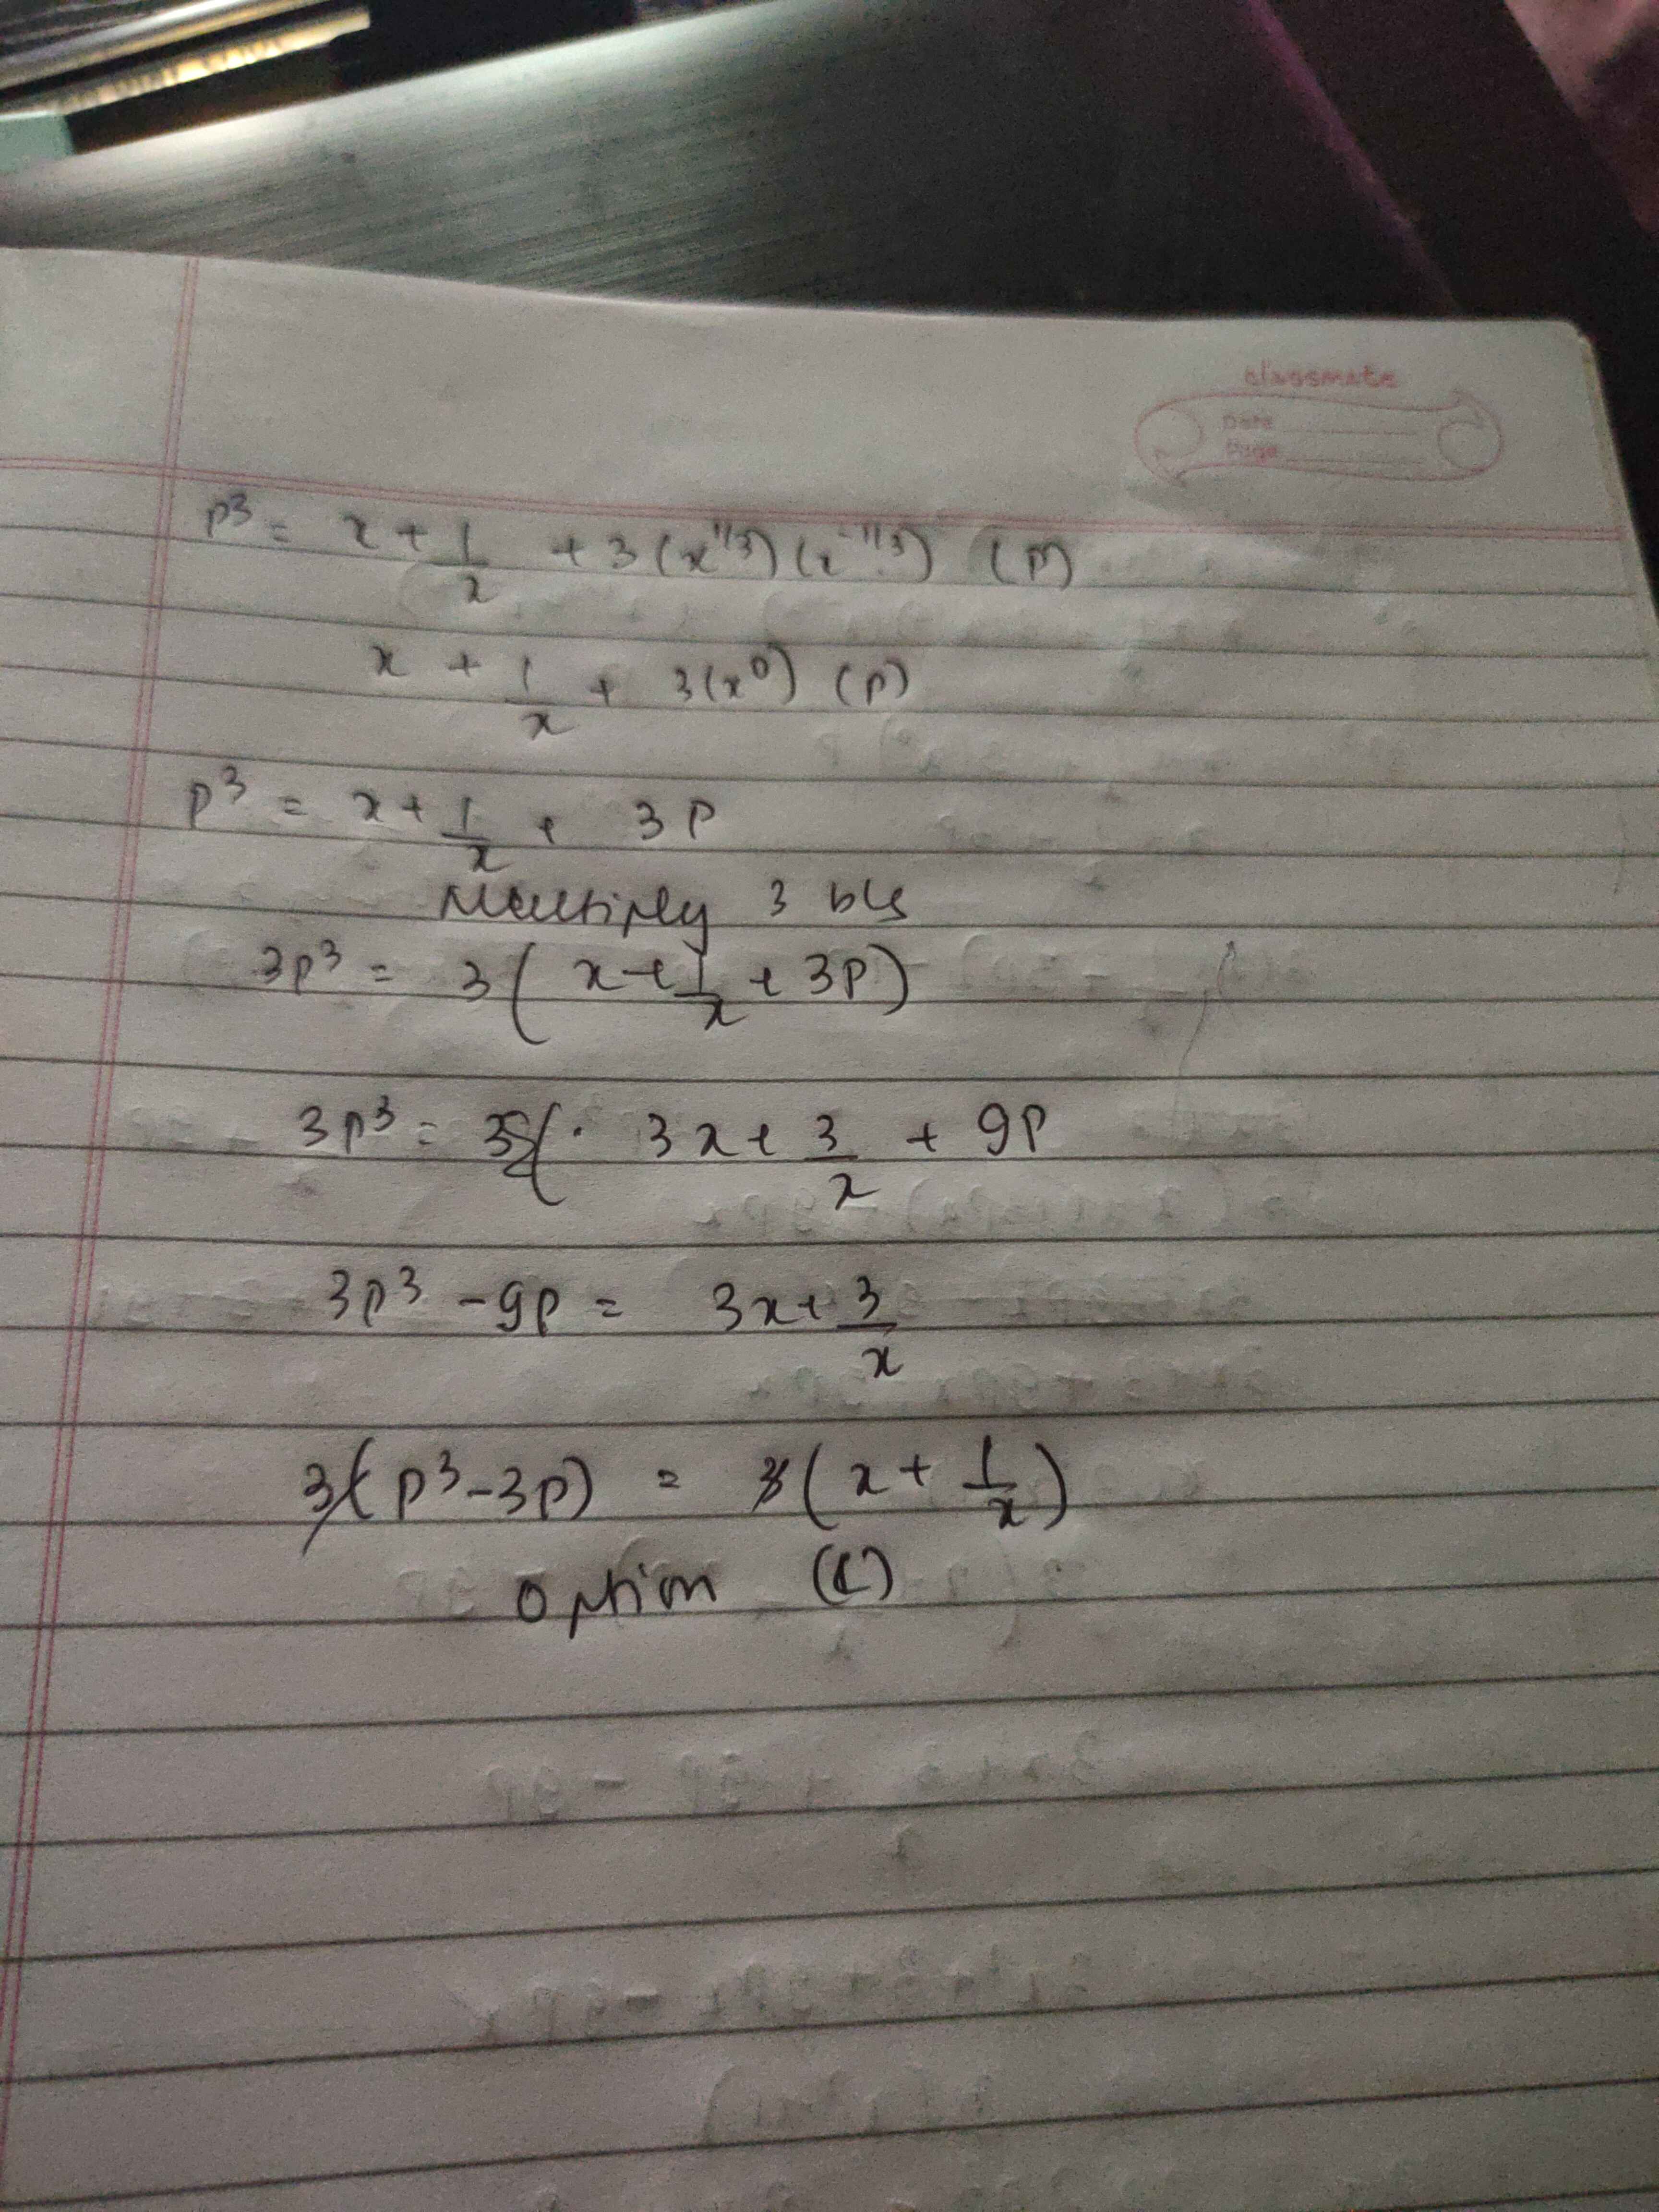 classmate
Date
Page
p³ = x + 1/x + 3(x^1/3)(x^-1/3) (p)
x + 1/x + 3(x⁰) (p)
p³ = x + 1/x + 3p
Multiply 3 b/s
3p³ = 3(x + 1/x + 3p)
3p³ = 3x + 3/x + 9p
3p³ - 9p = 3x + 3/x
3(p³ - 3p) = 3(x + 1/x)
option (C)